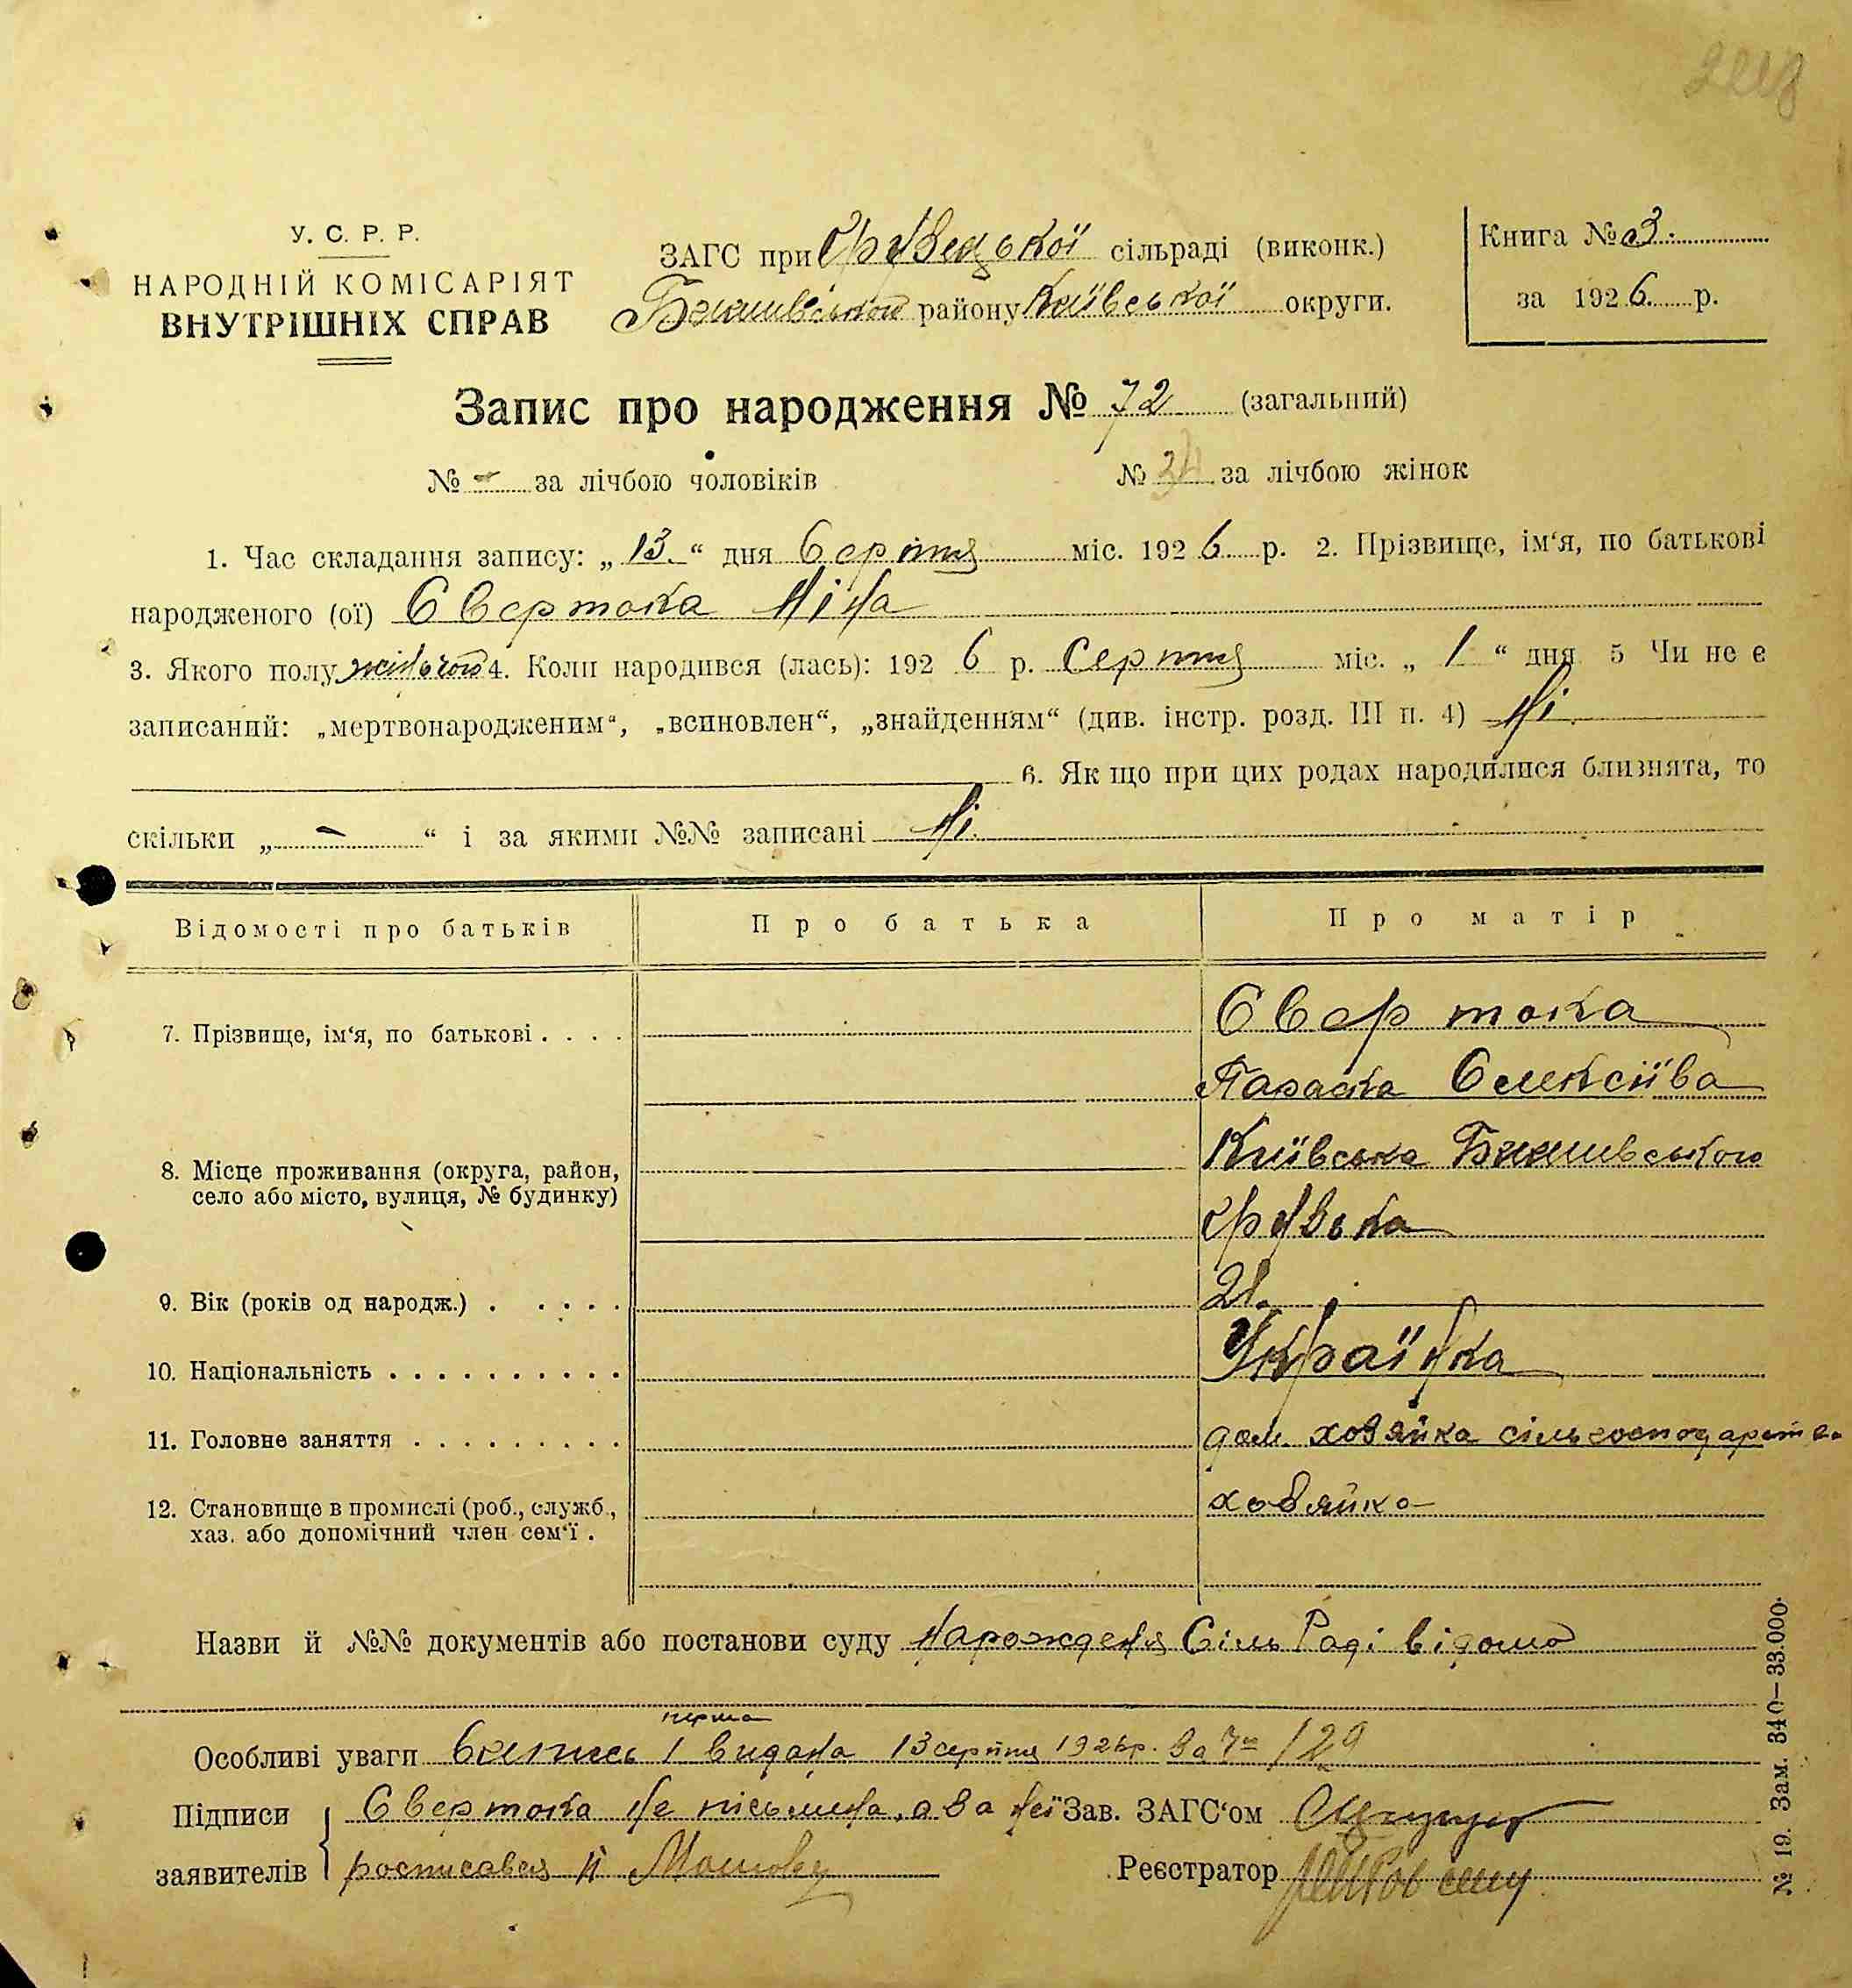 У. С. Р. Р.
НАРОДНІЙ КОМІСАРІЯТ
ВНУТРІШНІХ СПРАВ
ЗАГС при Грузецької сільраді (виконк.)
Бишивського району Київської округи.
Книга № 3.
за 1926 р.
Запис про народження № 72 (загальний)
№ - за лічбою чоловіків № 34 за лічбою жінок
1. Час складання запису: „13.“ дня Серпня міс. 1926 р. 2. Прізвище, ім‘я, по батькові
народженого (ої) Свертока Ніна
3. Якого полу жіночого 4. Коли народився (лась): 1926 р. Серпня міс. „1“ дня 5 Чи не є
записаний: „мертвонародженим“, „всиновлен“, „знайденням“ (див. інстр. розд. III п. 4) Ні.
6. Як що при цих родах народилися близнята, то
скільки „-“ і за якими №№ записані Ні.
Відомості про батьків Про батька Про матір
7. Прізвище, ім‘я, по батькові . . . . Свертока
Параска Олексіїва
8. Місце проживання (округа, район, Київська Бишивського
село або місто, вулиця, № будинку)
Грузька
9. Вік (років од народж.) . . . . . 21.
10. Національність . . . . . . . . . . Українка
11. Головне заняття . . . . . . . . . дом. хозяйка сільгосподарства
12. Становище в промислі (роб., служб., хозяйка
хаз. або допомічний член сем‘ї .
Назви й №№ документів або постанови суду Нарождення Сіль Раді відомо
перша
Особливі уваги 1 видана 13 серпня 1926р. За № 129
Підписи Свертока не письмена, а за неї Зав. ЗАГС‘ом
заявителів росписався Реєстратор
№ 19. Зам. 340—33.000.